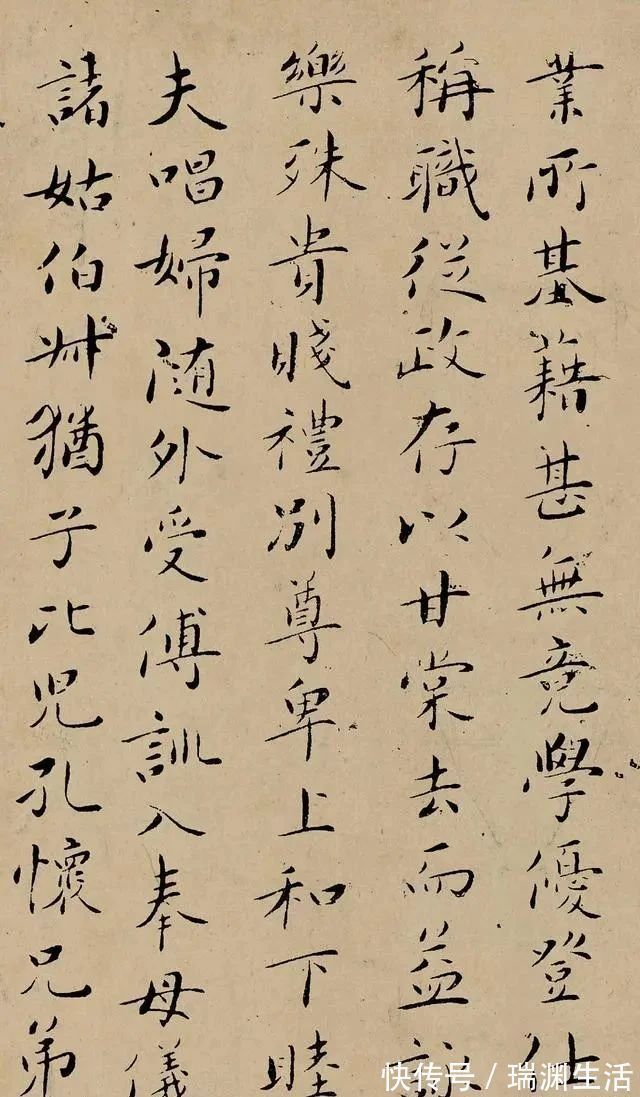 業所基藉甚無竟學優登仕
稱職從政存以甘棠去而益詠
樂殊貴賤禮別尊卑上和下睦
夫唱婦随外受傅訓入奉母儀
諸姑伯叔猶子比兒孔懷兄弟
快传号／瑞渊生活